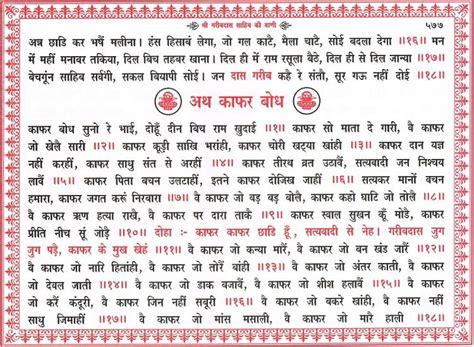 श्री गरीबदास साहिब की वाणी ५७७
अन्न छाडि कर भषैं मलीना। हंस हिसाबं लेगा, जो गल काटै, मैला चाटै, सोई बदला देगा ॥१६॥ मन
में महीं मनावर तकिया, दिल विच तहबर खाना। दिल ही में राम रसूला बैठे, दिल ही से दिल जान्या ॥१७॥
बेचगूंन साहिब सर्वगी, सकल वियापी सोई। जन दास गरीब कहै रे संतौ, सूर गऊ नहीं दोई ॥१८॥
अथ काफर बोध
काफर बोध सुनो रे भाई, दोहूँ दीन बिच राम खुदाई ॥१॥ काफर सो माता दे गारी, वै काफर
जो खेलै सारी ॥२॥ काफर कूड़ी साखि भरांही, काफर चोरी खट्या खांही ॥३॥ काफर दान यज्ञ
नहीं करहीं, काफर साधु संत से अरहीं ॥४॥ काफर तीरथ व्रत उठावैं, सत्यवादी जन निश्चय
लावैं ॥५॥ काफर पिता बचन उलटाहीं, इतने काफर दोजिख जाहीं ॥६॥ सत्यकर मानो बचन
हमारा, काफर जगत करूं निरबारा ॥७॥ वै काफर जो बड़ बड़ बोलै, काफर कहो घाटि जो तोलै ॥८॥
वै काफर ऋण हत्या राखै, वै काफर पर दारा ताकै ॥९॥ काफर स्वाल सुखन कूं मोड़ै, काफर
प्रीति नीच सूं जोड़ै ॥१०॥ दोहा :- काफर काफर छाडि हूँ, सत्यवादी से नेह। गरीबदास जुग
जुग पड़ै, काफर के मुख खेह ॥११॥ वै काफर जो कन्या मारैं, वै काफर जो बन खंड जारैं ॥१२॥
वै काफर जो नारि हितांही, वै काफर जो तोरैं बांही ॥१३॥ वै काफर जो अंतर काती, वै काफर
जो देवल जाती ॥१४॥ वै काफर जो डाक बजावैं, वै काफर जो शीश हलावैं ॥१५॥ वै काफर
जो करैं कंदूरी, वै काफर जिन नहीं सबूरी ॥१६॥ वै काफर जो बकरे खांही, वै काफर नहीं
साधु जिमाहीं ॥१७॥ वै काफर जो मांस मसाली, वै काफर जो मारे हाली ॥१८॥